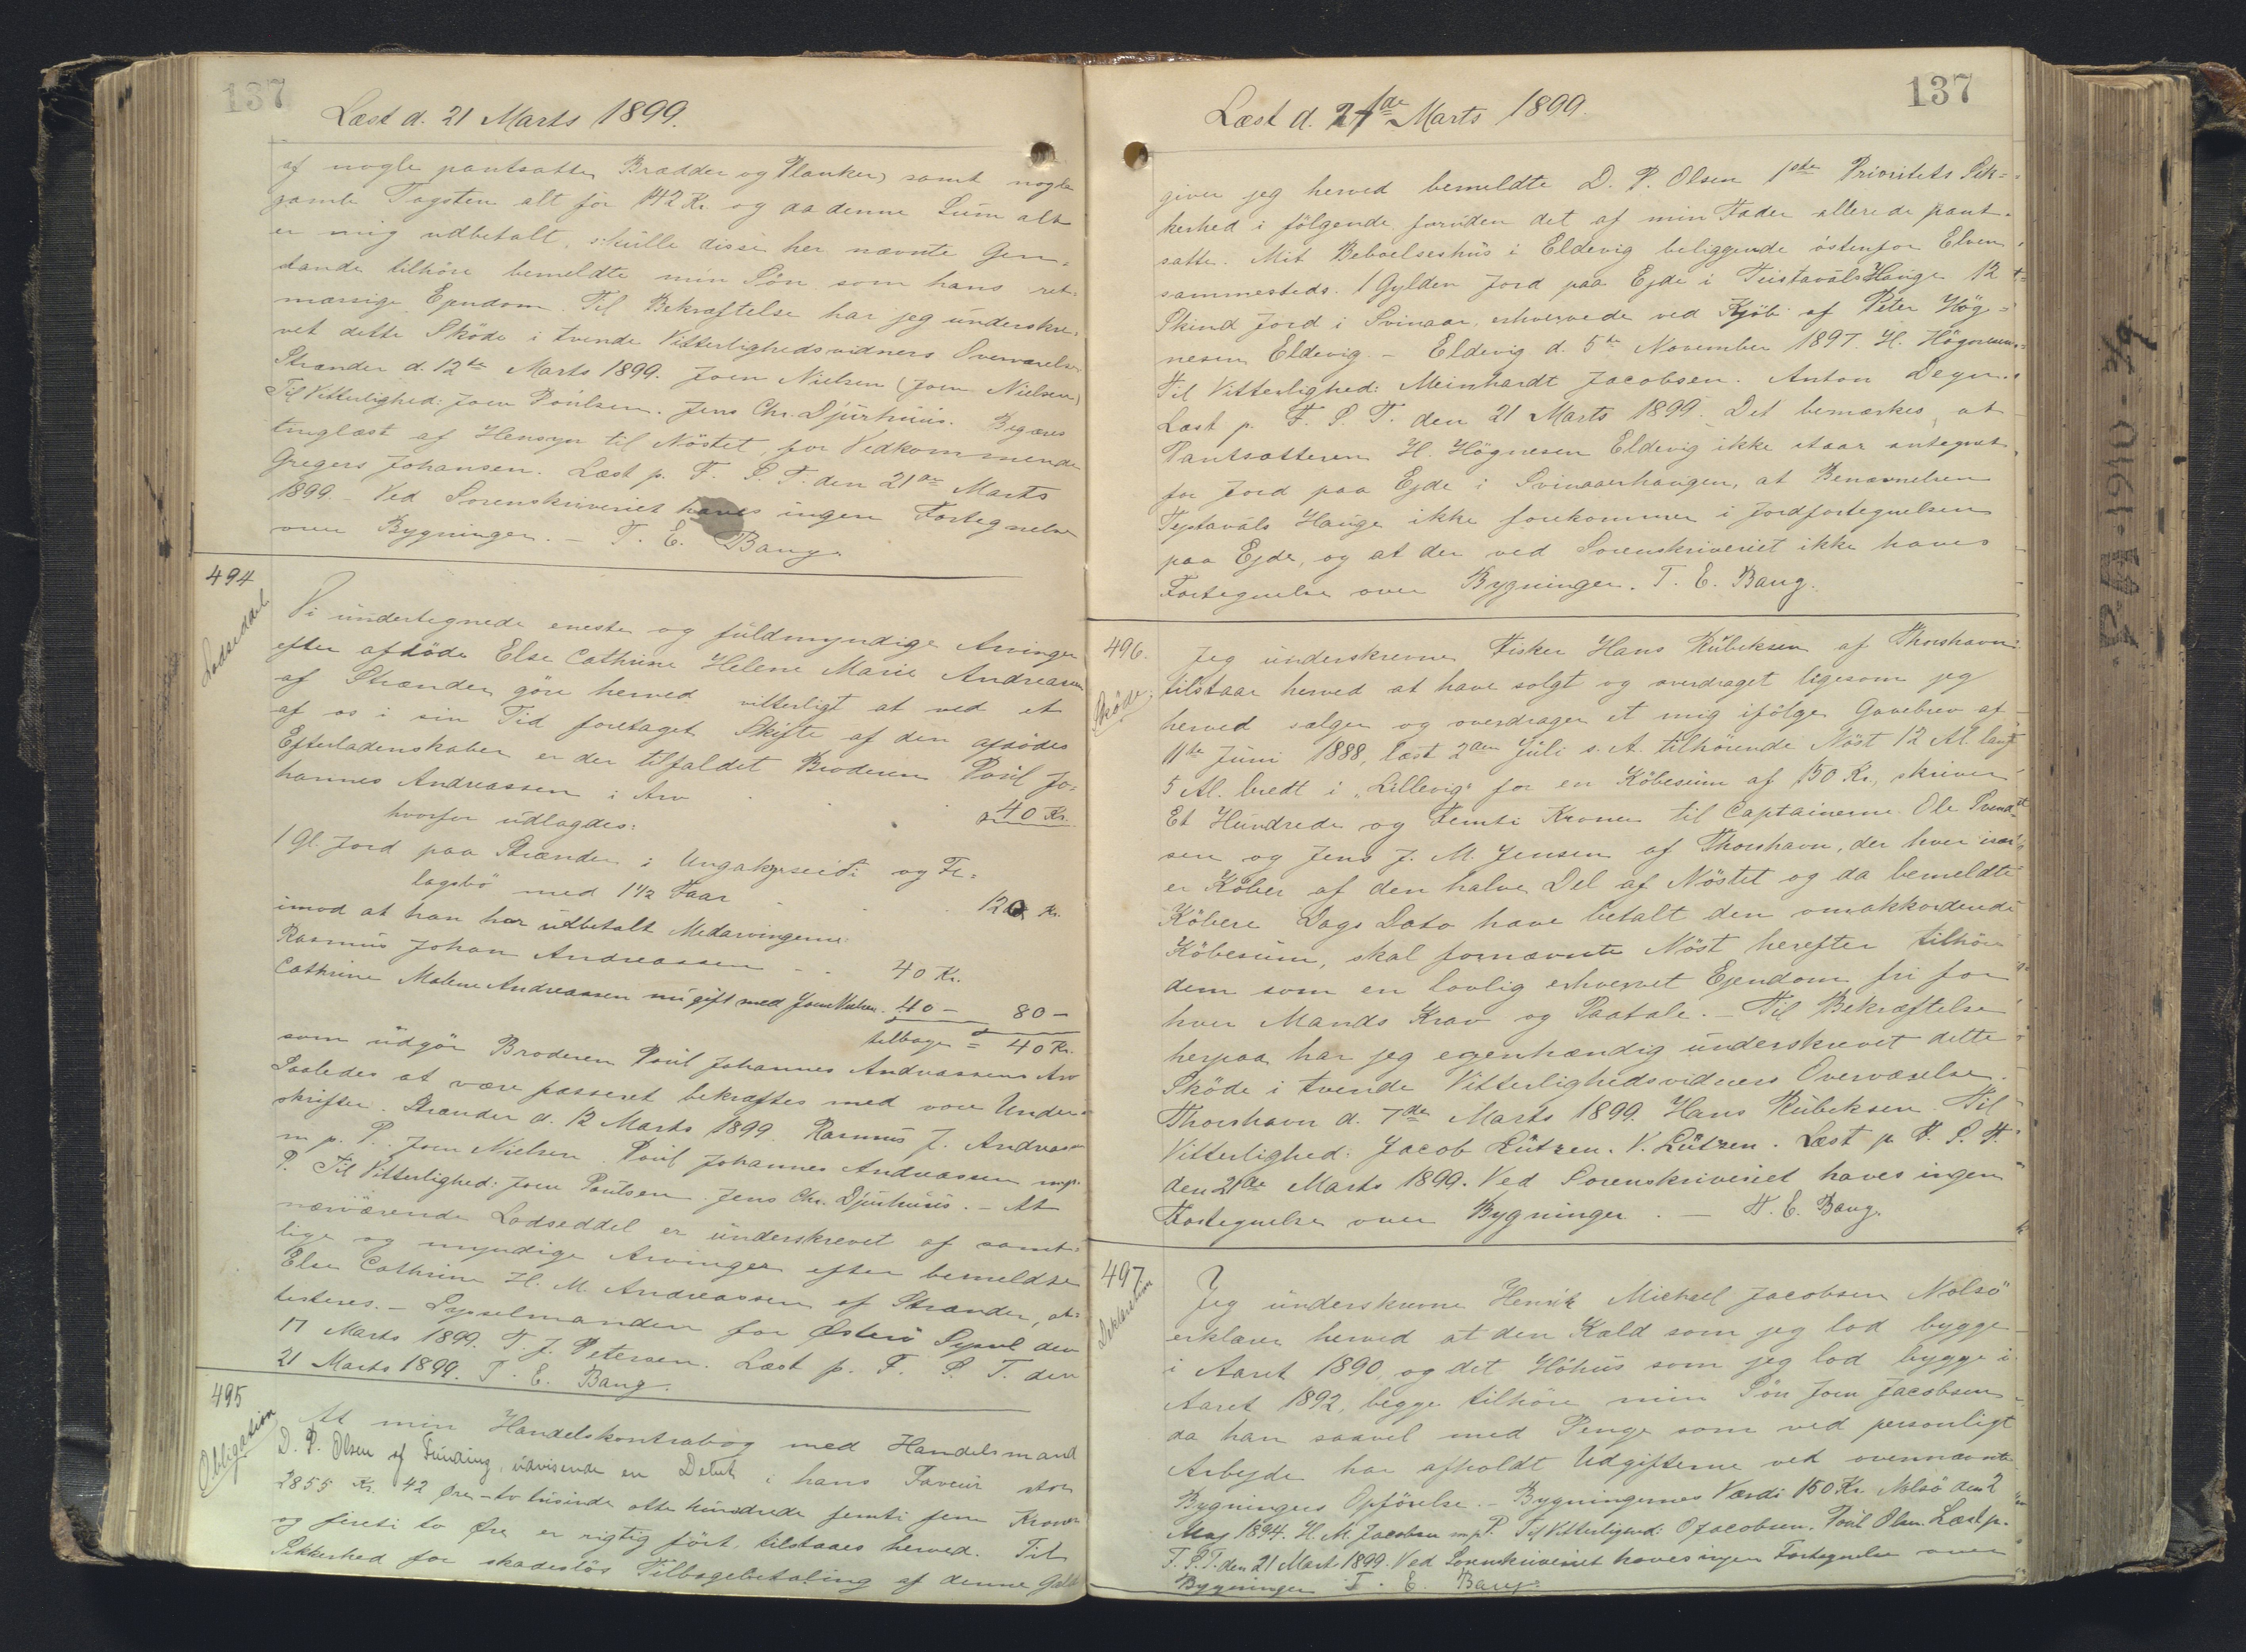 137
Læst d. 21 Marts 1899.
af nogle pantsatte Brædder og Planker, samt nogle
gamle Tagsten alt for 142 Kr. og da denne Sum alt
er mig udbetalt, skulle disse her nævnte Gen-
stande tilhöre bemeldte min Sön som hans ret-
mæssige Ejendom. Til Bekræftelse har jeg underskre-
vet dette Sköde i tvende Vitterlighedsvidners Overværelse
Strænder d. 12te Marts 1899. Joen Nielsen (Joen Nielsen)
Til Vitterlighed: Joen Poulsen. Jens Chr. Djurhuus. Begæres
tinglæst af Hensyn til Nöstet, for Vedkommende
Gregers Johansen. Læst p. F. S. T. den 21de Marts
1899. Ved Sorenskriveriet haves ingen Fortegnelse
over Bygninger. – T. E. Bang.
494
Lodseddel
Vi undertegnede eneste og fuldmyndige Arvinger
efter afdöde Else Cathrine Helene Marie Andreasen
af Strænder göre herved vitterligt at ved et
af os i sin Tid foretaget Skifte af den afdödes
Efterladenskaber er der tilfaldet Broderen Poul Jo-
hannes Andreassen i Arv 40 Kr.
hvorfor udlagdes:
1 Gl. Jord paa Strænder i Ungakyrseidi og Fe-
lagsbö med 1 1/2 Faar 120 Kr.
imod at han har udbetalt Medarvingerne:
Rasmus Johan Andreassen 40 Kr.
Cathrine Malene Andreassen nu gift med Joen Nielsen 40 – 80 –
tilbage = 40 Kr.
som udgör Broderen Poul Johannes Andreassens Arv
Saaledes at være passeret bekræftes med vore Under-
skrifter. Strænder d. 12 Marts 1899. Rasmus J. Andreassen
m. p. P. Joen Nielsen. Poul Johannes Andreassen m. p.
P. Til Vitterlighed: Joen Poulsen. Jens Chr. Djurhuus. – At
nærværende Lodseddel er underskrevet af samt-
lige og myndige Arvinger efter bemeldte
Else Cathrine H. M. Andreassen af Strænder, at-
testeres. – Sysselmanden for Østerö Syssel den
17 Marts 1899. T. J. Petersen. Læst p. F. S. T. den
21 Marts 1899. T. E. Bang.
495
Obligation
At min Handelskontrabog med Handelsmand
D. P. Olsen af Funding, udvisende en Debet i hans Faveur stor
2855 Kr. 42 Øre – to tusinde otte hundrede femti fem Kroner
og fireti to Øre er rigtig fört, tilstaaes herved. Til
Sikkerhed for skadeslös Tilbagebetaling af denne Gæld
137
Læst d. 21de Marts 1899.
giver jeg herved bemeldte D. P. Olsen 1ste Prioritets Sik-
kerhed i fölgende foruden det af min Fader allerede pant-
satte. Mit Beboelseshus i Eldevig beliggende östenfor Elven
sammesteds. 1 Gylden Jord paa Ejde i Teistavals Hauge 12
Skind Jord i Svinaar, erhvervede ved Kjöb af Peter Hög-
nesen Eldevig. – Eldevig d. 5te November 1897. H. Högnesen.
Til Vitterlighed: Meinhardt Jacobsen. Anton Degn.
Læst p. F. S. T. den 21 Marts 1899. Det bemærkes, at
Pantsætteren H. Högnesen Eldevig ikke staar antegnet
for Jord paa Ejde i Svinaarhaugen, at Benævnelsen
Teistavals Hauge ikke forekommer i Jordfortegnelsen
paa Ejde, og at der ved Sorenskriveriet ikke haves
Fortegnelse over Bygninger. T. E. Bang.
496.
Sköde.
Jeg underskrevne Fisker Hans Rubeksen af Thorshavn
tilstaar herved at have solgt og overdraget ligesom jeg
herved sælger og overdrager et mig ifölge Gavebrev af
11te Juni 1888, læst 2den Juli s. A. tilhörende Nöst 12 Al. langt
5 Al. bredt i "Lillevig" for en Köbesum af 150 Kr., skriver
Et Hundrede og Femti Kroner til Captainerne Ole Svend-
sen og Jens J. M. Jensen af Thorshavn, der hver især
er Köber af den halve Del af Nöstet og da bemeldte
Köbere Dags Dato have betalt den omakkorderede
Köbesum, skal fornævnte Nöst herefter tilhöre
dem som en lovlig erhvervet Ejendom fri for
hver Mands Krav og Paatale. – Til Bekræftelse
herpaa har jeg egenhændig underskrevet dette
Sköde i tvende Vitterlighedsvidners Overværelse.
Thorshavn d. 7de Marts 1899. Hans Rubeksen. Til
Vitterlighed: Jacob Lützen. V. Lützen. Læst p. F. S. T.
den 21de Marts 1899. Ved Sorenskriveriet haves ingen
Fortegnelse over Bygninger. – T. E. Bang.
497
Deklaration
Jeg underskrevne Henrik Michael Jacobsen Nolsö
erklærer herved at den Kald som jeg lod bygge
i Aaret 1890, og det Höhus som jeg lod bygge i
Aaret 1892, begge tilhöre min Sön Joen Jacobsen
da han saavel med Penge som ved personligt
Arbejde har afholdt Udgifterne ved ovennævnte
Bygningers Opförelse. – Bygningernes Værdi 150 Kr. Nolsö den 2
Maj 1894. H. M. Jacobsen m. p. P. Til Vitterlighed: O Jacobsen. Poul Olsen. Læst p.
F. S. T. den 21 Marts 1899. Ved Sorenskriveriet haves ingen Fortegnelse over
Bygninger T. E. Bang.